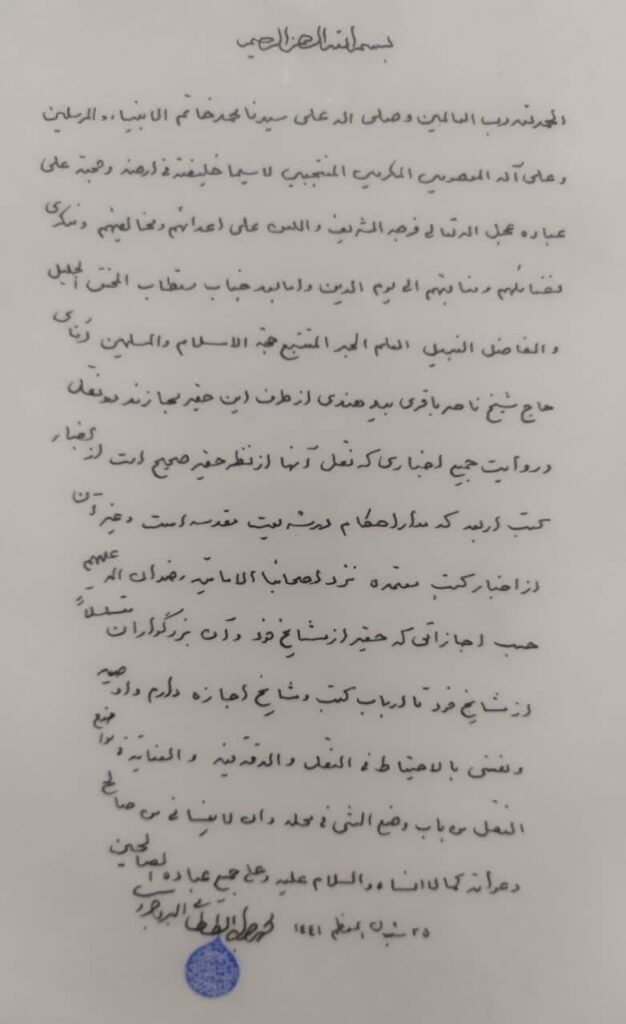 بسم الله الرحمن الرحیم
الحمد لله رب العالمین و صلی الله علی سیدنا محمد خاتم الانبیاء و المرسلین
و علی آله المعصومین المکرمین المنتجبین لا سیما خلیفته فی ارضه و حجته علی
عباده عجل الله تعالی فرجه الشریف و اللعن علی اعدائهم و مخالفیهم و منکری
فضائلهم و مناقبهم الی یوم الدین و اما بعد جناب مستطاب المحقق الجلیل
و الفاضل النبیل العلم الحبر المتتبع حجة الاسلام و المسلمین آقای
حاج شیخ ناصر باقری بیدهندی از طرف این حقیر مجازند در نقل
و روایت جمیع اخباری که نقل آنها از نظر حقیر صحیح است از اخبار
کتب اربعه که مدار احکام شریعت مقدسه است و غیر آن
از اخبار کتب معتمده نزد اصحابنا الامامیة رضوان الله علیهم
حسب اجازاتی که حقیر از مشایخ خود و آن بزرگواران مسلسلاً
از مشایخ خود تا ارباب کتب و مشایخ اجازه دارم و اوصیه
و نفسی بالاحتیاط فی النقل و الدقة فیه و العنایة فی مواضع
النقل من باب وضع الشیء فی محله و ان لا ینسانی من صالح
دعواته کما لا انساه و السلام علیه و علی جمیع عباده الصالحین
۲۵ شعبان المعظم ۱۴۴۱ الطباطبائی البروجردی